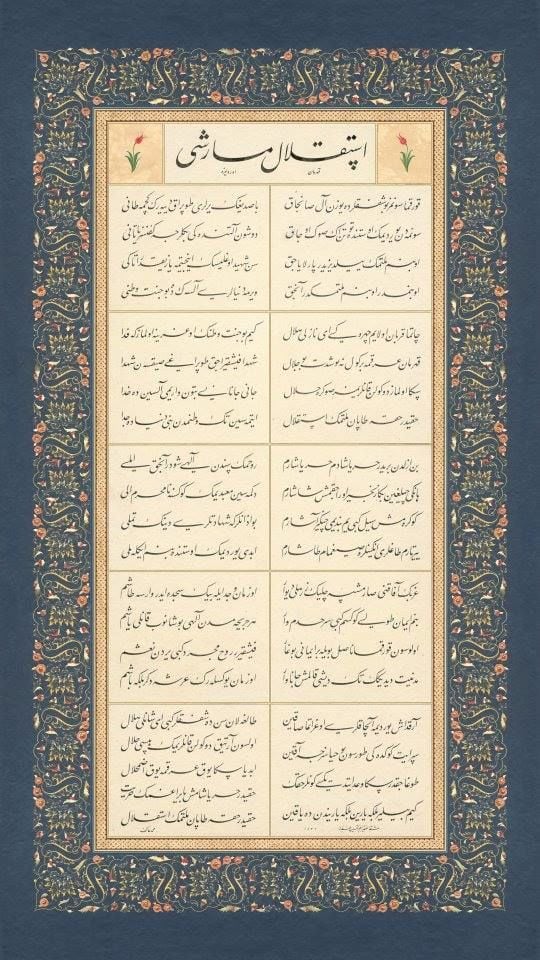 استقلال مارشی
قهرمان اوردومزه
قورقما سونمز بو شفقلرده یوزن آل صانجاق
سونمه‌دن یوردیمك اوستنده توتن اك صوك اوجاق
او بنم ملتمك ییلدیزیدر پارلایاجق
او بنمدر او بنم ملتمكدر آنجق
چاتما قربان اولایم چهره‌كی ای نازلی هلال
قهرمان عرقمه بر گول نه بو شدت بو جلال
سكا اولماز دوكولن قانلرمز صوكره حلال
حقیدر حقه طاپان ملتمك استقلال
بن ازلدن بریدر حر یاشادم حر یاشارم
هانكی چیلغین بكا زنجیر اوراجقمش شاشارم
كوكره‌مش سیل كبی‌یم بندیمی چیكنر آشارم
ییرتارم طاغلری انكینلره صیغمام طاشارم
غربك آفاقنی صارمشسه چلیك زرهلی دوار
بنم ایمان طولی كوكسم كبی سرحدم وار
اولوسون قورقما ناصل بویله بر ایمانی بوغار
مدنیت دیدیكك تك دیشی قالمش جاناوار
آرقداش یوردیمه آلچاقلری اوغراتما صاقین
سپر ایت كوكده‌كی طورسون بو حیاسزجه آقین
طوغاجقدر سكا وعد ایتدیكی كونلر حقك
كیم بیلیر بلكه یارین بلكه یاریندن ده یاقین
باصدیغك یرلری طوپراق دییه‌رك كچمه طانی
دوشون آلتنده‌كی بیكلرجه كفنسز یاتانی
سن شهید اوغلیسك اینجیتمه یازیقدر آتاكی
ویرمه دنیالری آلسه‌ك ده بو جنت وطنی
كیم بو جنت وطنك اوغرینه اولماز كه فدا
شهدا فیشقیراجق طوپراغی صیقسه‌ك شهدا
جانی جانانی بتون واریمی آلسین ده خدا
ایتمه‌سین تك وطنمدن بنی دنیاده جدا
روحمك سندن الهی شودر آنجق املی
دكمه‌سین معبدیمك كوكسنه نامحرم الی
بو اذانلر كه شهادتلری دینك تملی
ابدی یوردیمك اوستنده بنم ایكله‌ملی
او زمان وجد ایله بیك سجده ایدر وارسه طاشم
هر جریحه‌مدن الهی بوشانوب قانلی یاشم
فیشقیریر روح مجرد كبی یردن نعشم
او زمان یوكسله‌رك عرشه دكر بلكه باشم
طالغه‌لان سن ده شفقلر كبی ای شانلی هلال
اولسون آرتیق دوكولن قانلریمك هپسی حلال
ابدیا سكا یوق عرقمه یوق اضمحلال
حقیدر حر یاشامش بایراغمك حریت
حقیدر حقه طاپان ملتمك استقلال